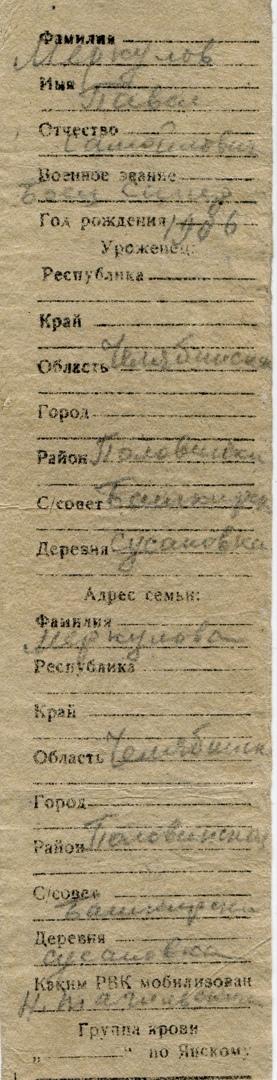 Фамилия
Меркулов
Имя
Павел
Отчество
Самойлович
Военное звание
Год рождения 1906
Уроженец:
Республика
Край
Область Челябинская
Город
Район Половински
С/совет Башкирск
Деревня Сусановка
Адрес семьи:
Фамилия
Меркулова
Республика
Край
Область Челябинск
Город
Район Половинский
С/совет
Башкирски
Деревня
Сусановка
Каким РВК мобилизован
Н. Тагильским
Группа крови
„ “ по Янскому